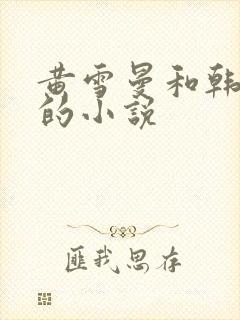 黄雪曼和韩
的小说
匪我思存